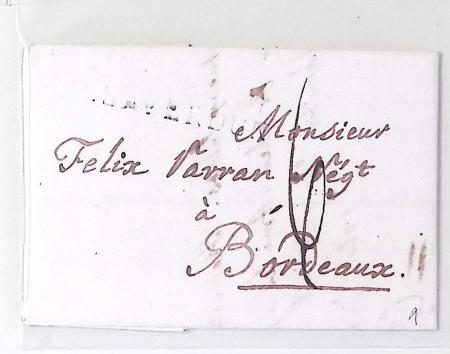 Monsieur
Felix Varran Négt
à
Bordeaux.